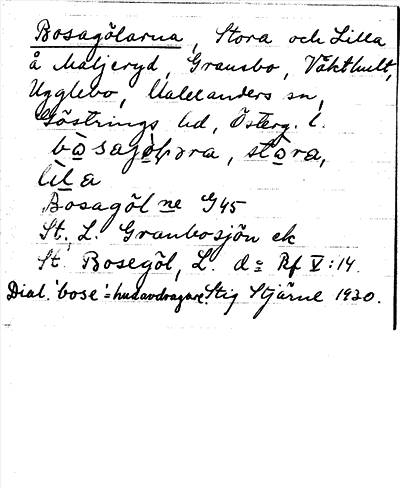 Bosagölarna, Stora och Lilla
å Maljeryd, Gransbo, Väkthult,
Ugglebo, Malexanders sn,
Göstrings hd, Österg. l.
bo̲sagö̲lɔra, sto̲ra,
li̲la
Bosagöl ne G45
St. L. Granbosjön ek
St. Bosegöl, L. d:o Rf V:14.
Dial. 'bose' = hudavdragare. Stig Stjärne 1930.